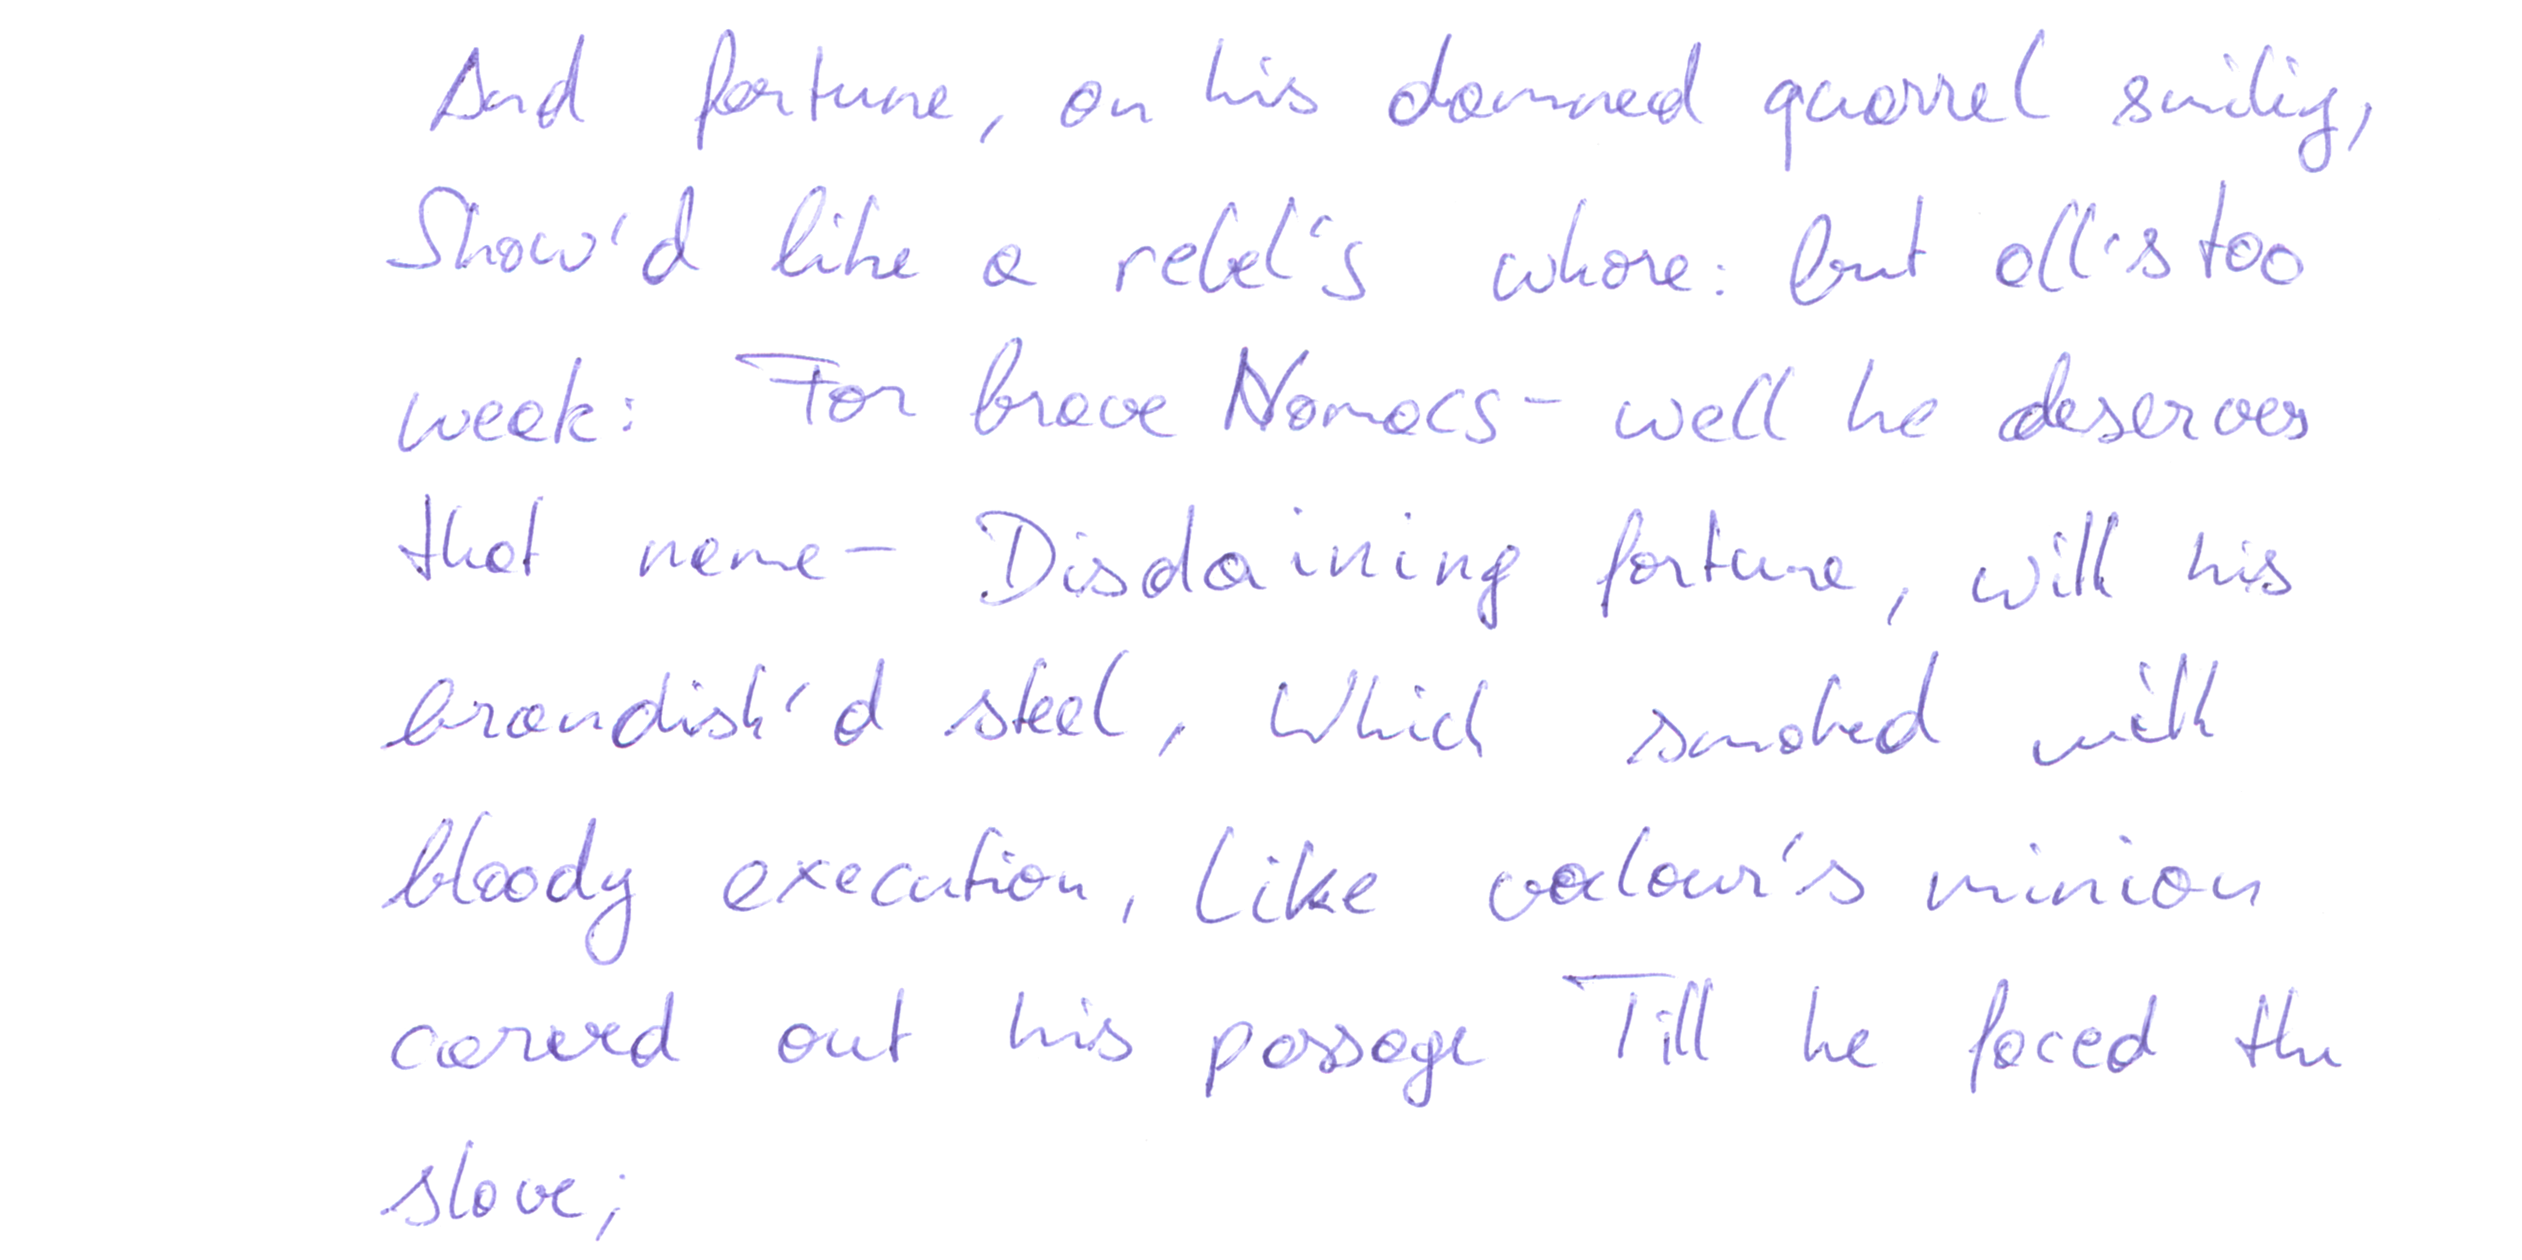 And fortune, on his damned quarrel smiling,
Show'd like a rebel's whore: but all's too
weak: For brave Nomacs- well he deserves
that name- Disdaining fortune, with his
brandish'd steel, Which smoked with
bloody execution, Like valour's minion
carved out his passage Till he faced the
slave;